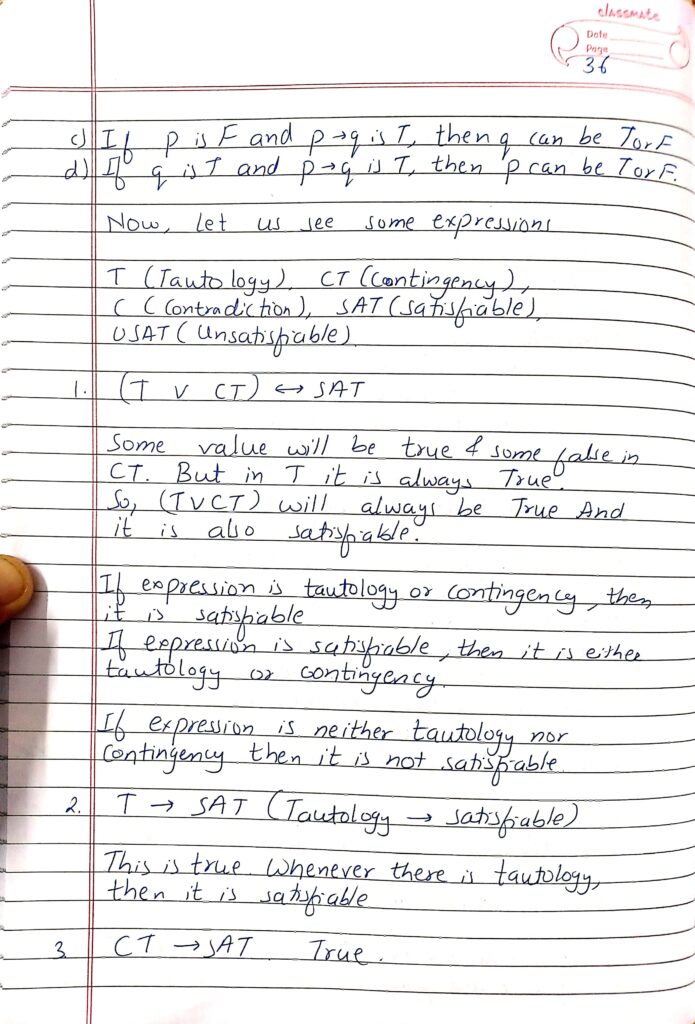 classmate
Date
Page
36
c) If p is F and p→q is T, then q can be T or F
d) If q is T and p→q is T, then p can be T or F.
Now, let us see some expressions
T (Tautology), CT (Contingency),
C (Contradiction), SAT (satisfiable),
USAT (Unsatisfiable)
1. (T ∨ CT) ↔ SAT
Some value will be true & some false in
CT. But in T it is always True.
So, (T∨CT) will always be True And
it is also satisfiable.
If expression is tautology or contingency, then
it is satisfiable
If expression is satisfiable, then it is either
tautology or contingency.
If expression is neither tautology nor
Contingency then it is not satisfiable.
2. T → SAT (Tautology → satisfiable)
This is true. Whenever there is tautology,
then it is satisfiable
3. CT → SAT True.